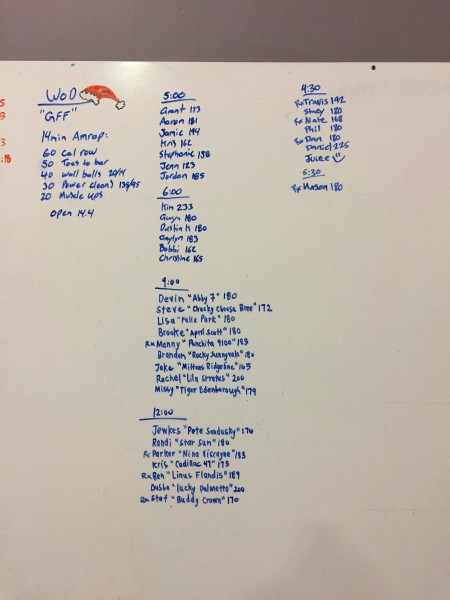 WOD
"GFF"
14min Amrap:
60 cal row
50 Toes to bar
40 Wall balls 20/14
30 Power cleans 135/95
20 Muscle ups
open 14.4
5:00
Grant 173
Aaron 181
Jamie 194
Kris 162
Stephanie 158
Jenn 123
Jordan 185
6:00
Kim 233
Gwyn 180
Dustin H 180
183
Bobbi 162
Christine 165
9:00
Devin "Abby 7" 180
Steve "Chucky Cheese Bree" 172
Lisa "Felix Park" 180
Brooke "April Scott" 180
Rx Manny "Panchita 9100" 183
Brandon "Rocky Sunnyvale" 180
Jake "Mittens Ridgeline" 165
Rachel "Lila Stratus" 200
Missy "Tiger Edenborough" 179
12:00
Jewkes "Pete Sandusky" 170
Randi "Star Sun" 180
Rx Parker "Nina Viscayne" 183
Kris "Cadillac 47" 173
Rx Ben "Linus Flandis" 189
"lucky palmetto" 200
Rx Stef "Buddy Crown" 170
4:30
Rx Travis 192
180
Rx Nate 168
Phil 180
Rx Dan 180
Daniel 225
Juice
5:30
Rx Mason 180